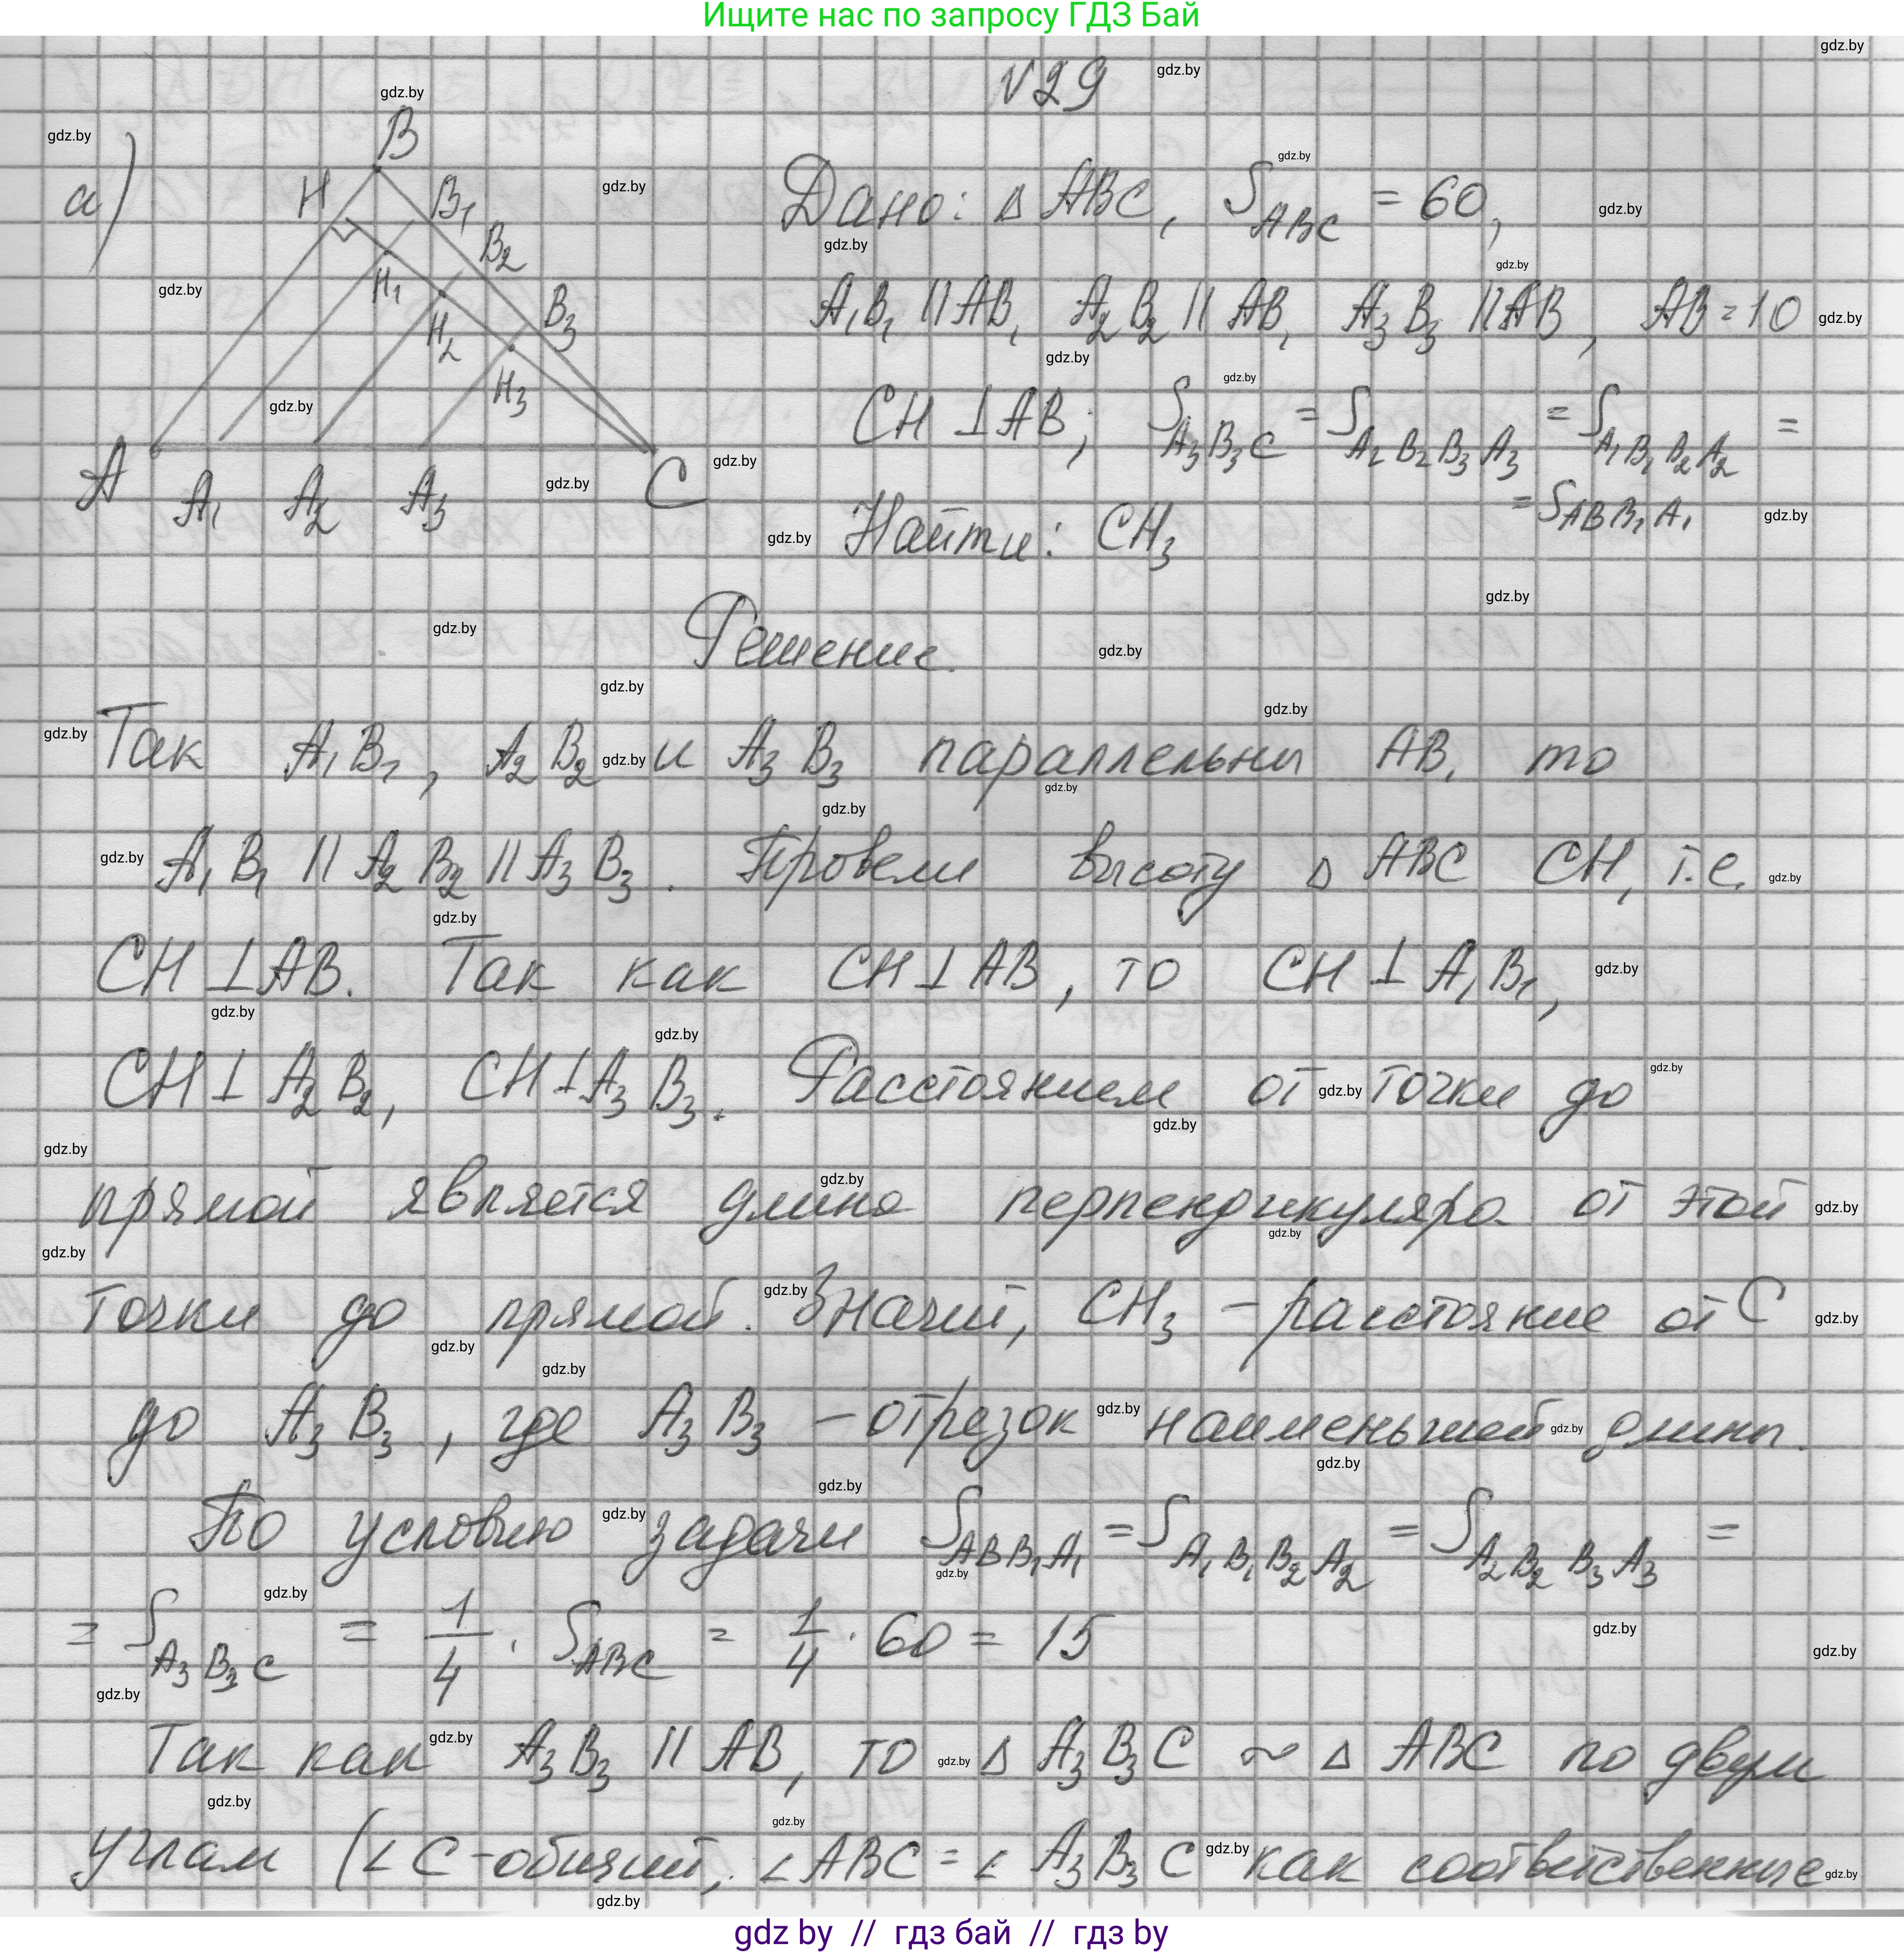 Ищите нас по запросу ГДЗ Бай
№29
а)
B
H
B₁
B₂
B₃
H₁
H₂
H₃
A
A₁
A₂
A₃
C
Дано: Δ ABC, S_ABC = 60,
A₁B₁ || AB, A₂B₂ || AB, A₃B₃ || AB, AB = 10
CH ⊥ AB; S_A₃B₃C = S_A₂B₂B₃A₃ = S_A₁B₁B₂A₂ =
= S_ABB₁A₁
Найти: CH₃
Решение.
Так A₁B₁, A₂B₂ и A₃B₃ параллельны AB, то
A₁B₁ || A₂B₂ || A₃B₃. Провели высоту Δ ABC CH, т.е.
CH ⊥ AB. Так как CH ⊥ AB, то CH ⊥ A₁B₁,
CH ⊥ A₂B₂, CH ⊥ A₃B₃. Расстоянием от точки до
прямой является длина перпендикуляра от этой
точки до прямой. Значит, CH₃ – расстояние от C
до A₃B₃, где A₃B₃ – отрезок наименьшей длины.
По условию задачи S_ABB₁A₁ = S_A₁B₁B₂A₂ = S_A₂B₂B₃A₃ =
= S_A₃B₃C = 1/4 · S_ABC = 1/4 · 60 = 15
Так как A₃B₃ || AB, то Δ A₃B₃C ~ Δ ABC по двум
углам (∠C – общий, ∠ABC = ∠A₃B₃C как соответственные
gdz by // гдз бай // гдз by